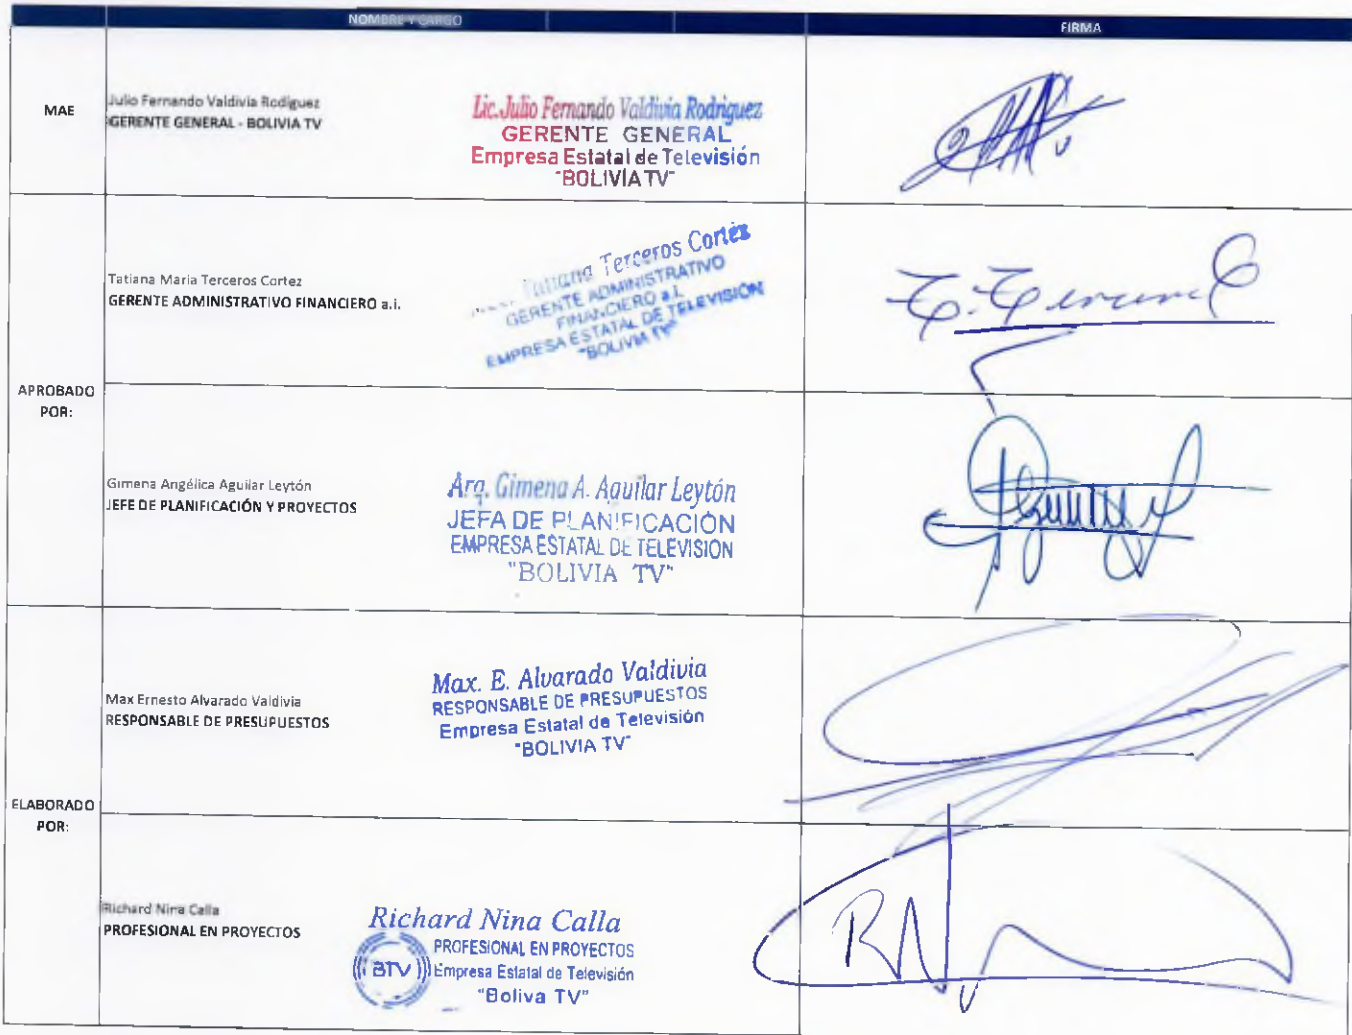 NOMBRE Y CARGO
FIRMA
MAE
Julio Fernando Valdivia Rodíguez
GERENTE GENERAL - BOLIVIA TV
Lic. Julio Fernando Valdivia Rodriguez
GERENTE GENERAL
Empresa Estatal de Televisión
"BOLIVIA TV"
APROBADO
POR:
Tatiana Maria Terceros Cortez
GERENTE ADMINISTRATIVO FINANCIERO a.i.
Tatiana Terceros Cortéz
GERENTE ADMINISTRATIVO
FINANCIERO a.i.
EMPRESA ESTATAL DE TELEVISIÓN
"BOLIVIA TV"
Gimena Angélica Aguilar Leytón
JEFE DE PLANIFICACIÓN Y PROYECTOS
Arq. Gimena A. Aguilar Leytón
JEFA DE PLANIFICACIÓN
EMPRESA ESTATAL DE TELEVISION
"BOLIVIA TV"
ELABORADO
POR:
Max Ernesto Alvarado Valdivia
RESPONSABLE DE PRESUPUESTOS
Max. E. Alvarado Valdivia
RESPONSABLE DE PRESUPUESTOS
Empresa Estatal de Televisión
"BOLIVIA TV"
Richard Nina Calla
PROFESIONAL EN PROYECTOS
Richard Nina Calla
PROFESIONAL EN PROYECTOS
BTV
Empresa Estatal de Televisión
"Boliva TV"